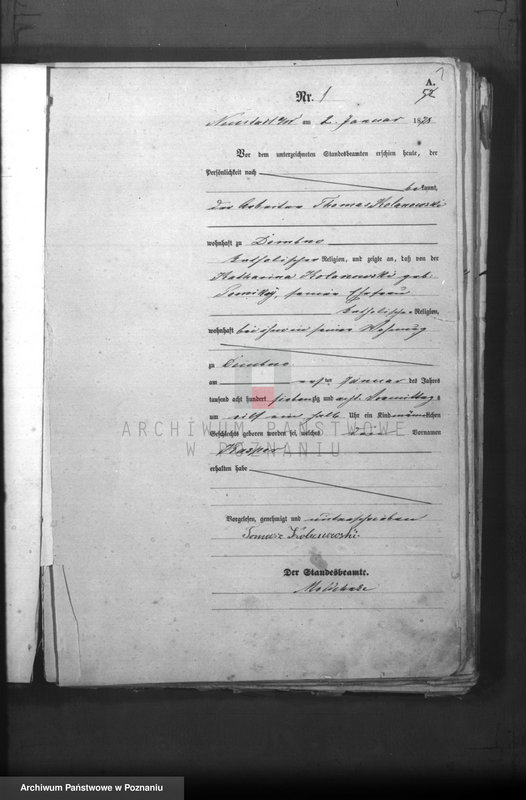 A.
Nr. 1
am 2. Januar 1878
Vor dem unterzeichneten Standesbeamten erschien heute, der
Persönlichkeit nach
bekannt,
der Arbeiter Thomas Kolanowski
wohnhaft zu Dembno
katholischer Religion, und zeigte an, daß von der
Katharina Kolanowski geb.
seiner Ehefrau
katholischer Religion,
wohnhaft bei ihm in seiner Wohnung
zu Dembno
am ersten Januar des Jahres
tausend acht hundert siebenzig und acht Vormittags
um elf ein halb Uhr ein Kind männlichen
Geschlechts geboren worden sei, welches Vornamen
Kasper
erhalten habe
Vorgelesen, genehmigt und unterschrieben
Tomasz Kolanowski
Der Standesbeamte.
ARCHIWUM PAŃSTWOWE
W POZNANIU
Archiwum Państwowe w Poznaniu